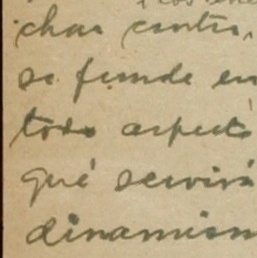 char contra,
se funde en
todo aspecto
qué servirá
dinamism